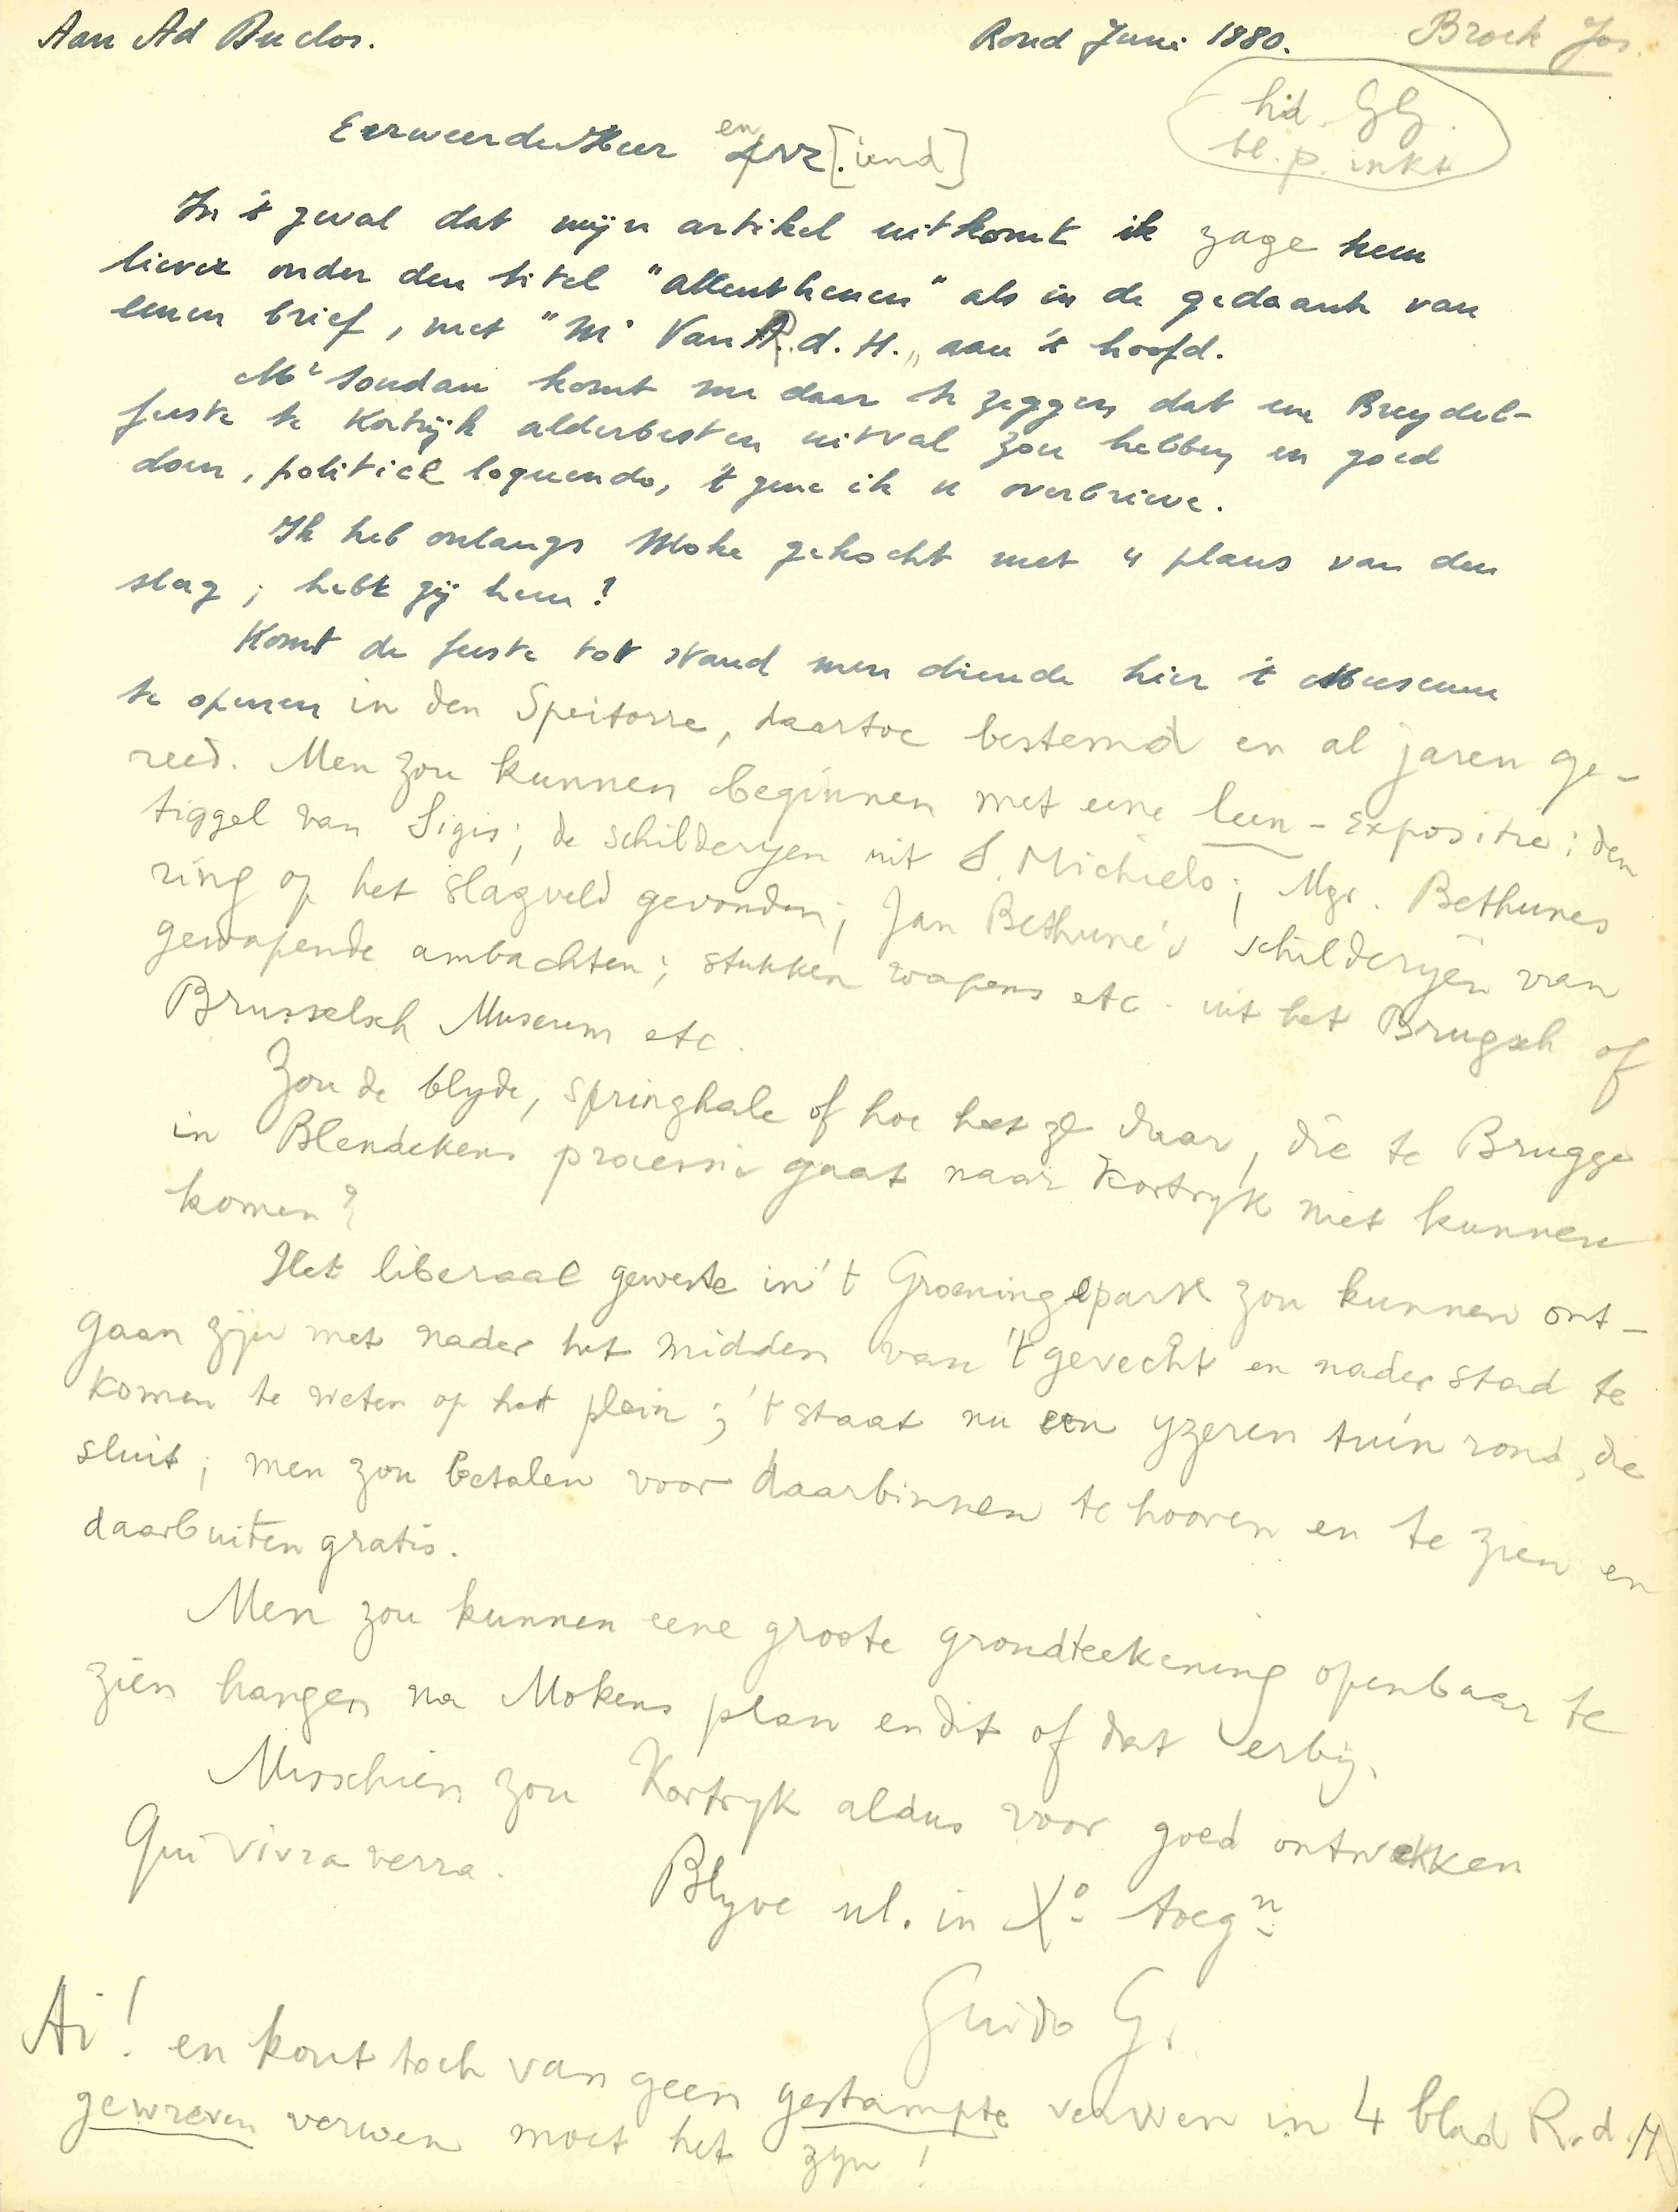 Aan Ad Duclos. Rond Juni 1880. Brock Jos.
hid. GG.
bl. p. inkt
Eerweerde Heer en vr[iend]
In 't geval dat mijn artikel uitkomt ik zage hem
liever onder den titel "allenthenen" als in de gedaante van
eenen brief, met "Mr Van R. d. H.„ aan 't hoofd.
Mr Soudan komt me daar te zeggen dat eene Breydel-
feeste te Kortrijk alderbesten uitval zou hebben en goed
doen, politice loquendo, 't gene ik u overbrieve.
Ik heb onlangs Moke gekocht met 4 plans van den
slag; hebt gij hem?
Komt de feeste tot stand men diende hier 't Museum
te openen in den Speitorre, daartoe bestemd en al jaren ge-
reed. Men zou kunnen beginnen met eene leen-expositie: den
tiggel van Sigis; de schilderyen uit S. Michiels; Mgr. Bethunes
ring op het slagveld gevonden; Jan Bethune's schilderyen van
gewapende ambachten; stukken wapens etc. uit het Brugsch of
Brusselsch Museum etc.
Zou de blyde, springhale of hoe heet ze daar, die te Brugge
in Blendekens processie gaat naar Kortryk niet kunnen
komen?
Het liberaal geweste in 't Groeningepark zou kunnen ont-
gaan zijn met nader het midden van 't gevecht en nader stad te
komen te weten op het plein; 't staat nu een yzeren tuin rond, die
sluit; men zou betalen voor daarbinnen te hooren en te zien en
daarbuiten gratis.
Men zou kunnen eene groote grondteekening openbaar te
zien hangen na Mokens plan en dit of dat erbij.
Misschien zou Kortryk aldus voor goed ontwekken
Qui vivra verra.
Blyve ul. in Xo toegn
Guido G.
Ai! en kout toch van geen gestampte verwen in 4 blad R. d. H
gewreven verwen moet het zyn!